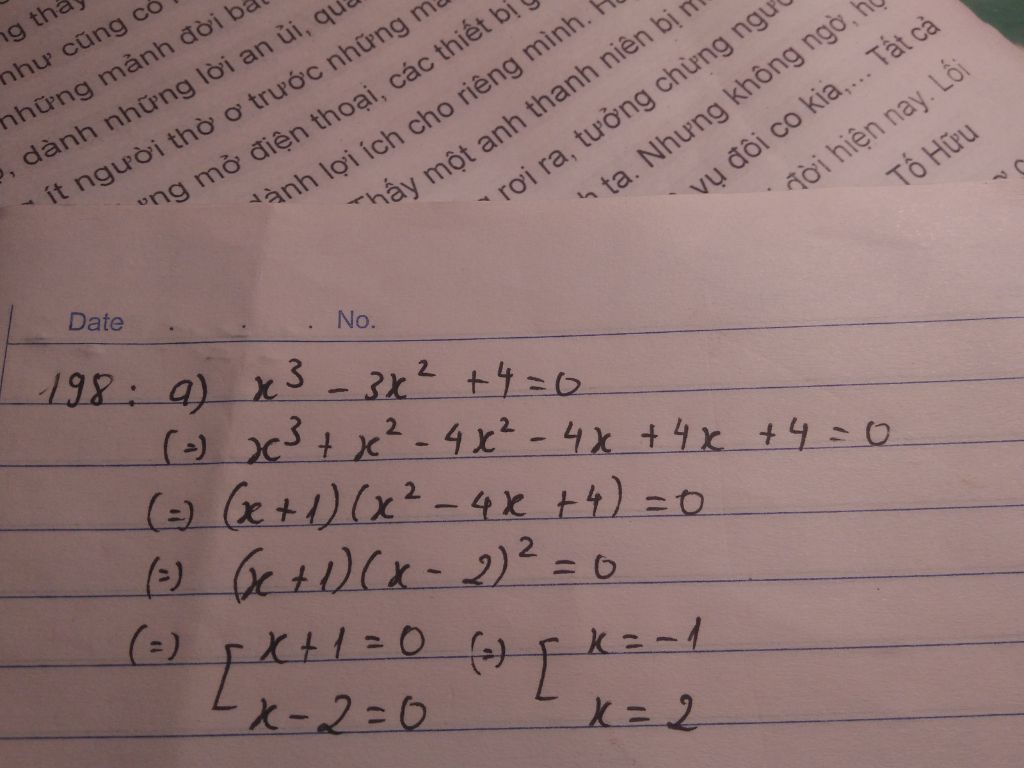 như cũng có
những mảnh đời bất
, dành những lời an ủi, qua
ít người thờ ơ trước những mả
mở điện thoại, các thiết bị g
dành lợi ích cho riêng mình. H
Thấy một anh thanh niên bị m
rơi ra, tưởng chừng ngươ
ta. Nhưng không ngờ, họ
vụ đôi co kia,... Tất cả
đời hiện nay. Lối
Tố Hữu
Date . . . No.
198: a) x³ - 3x² + 4 = 0
(=) x³ + x² - 4x² - 4x + 4x + 4 = 0
(=) (x + 1)(x² - 4x + 4) = 0
(=) (x + 1)(x - 2)² = 0
(=) [ x + 1 = 0 (=) [ x = -1
x - 2 = 0 x = 2